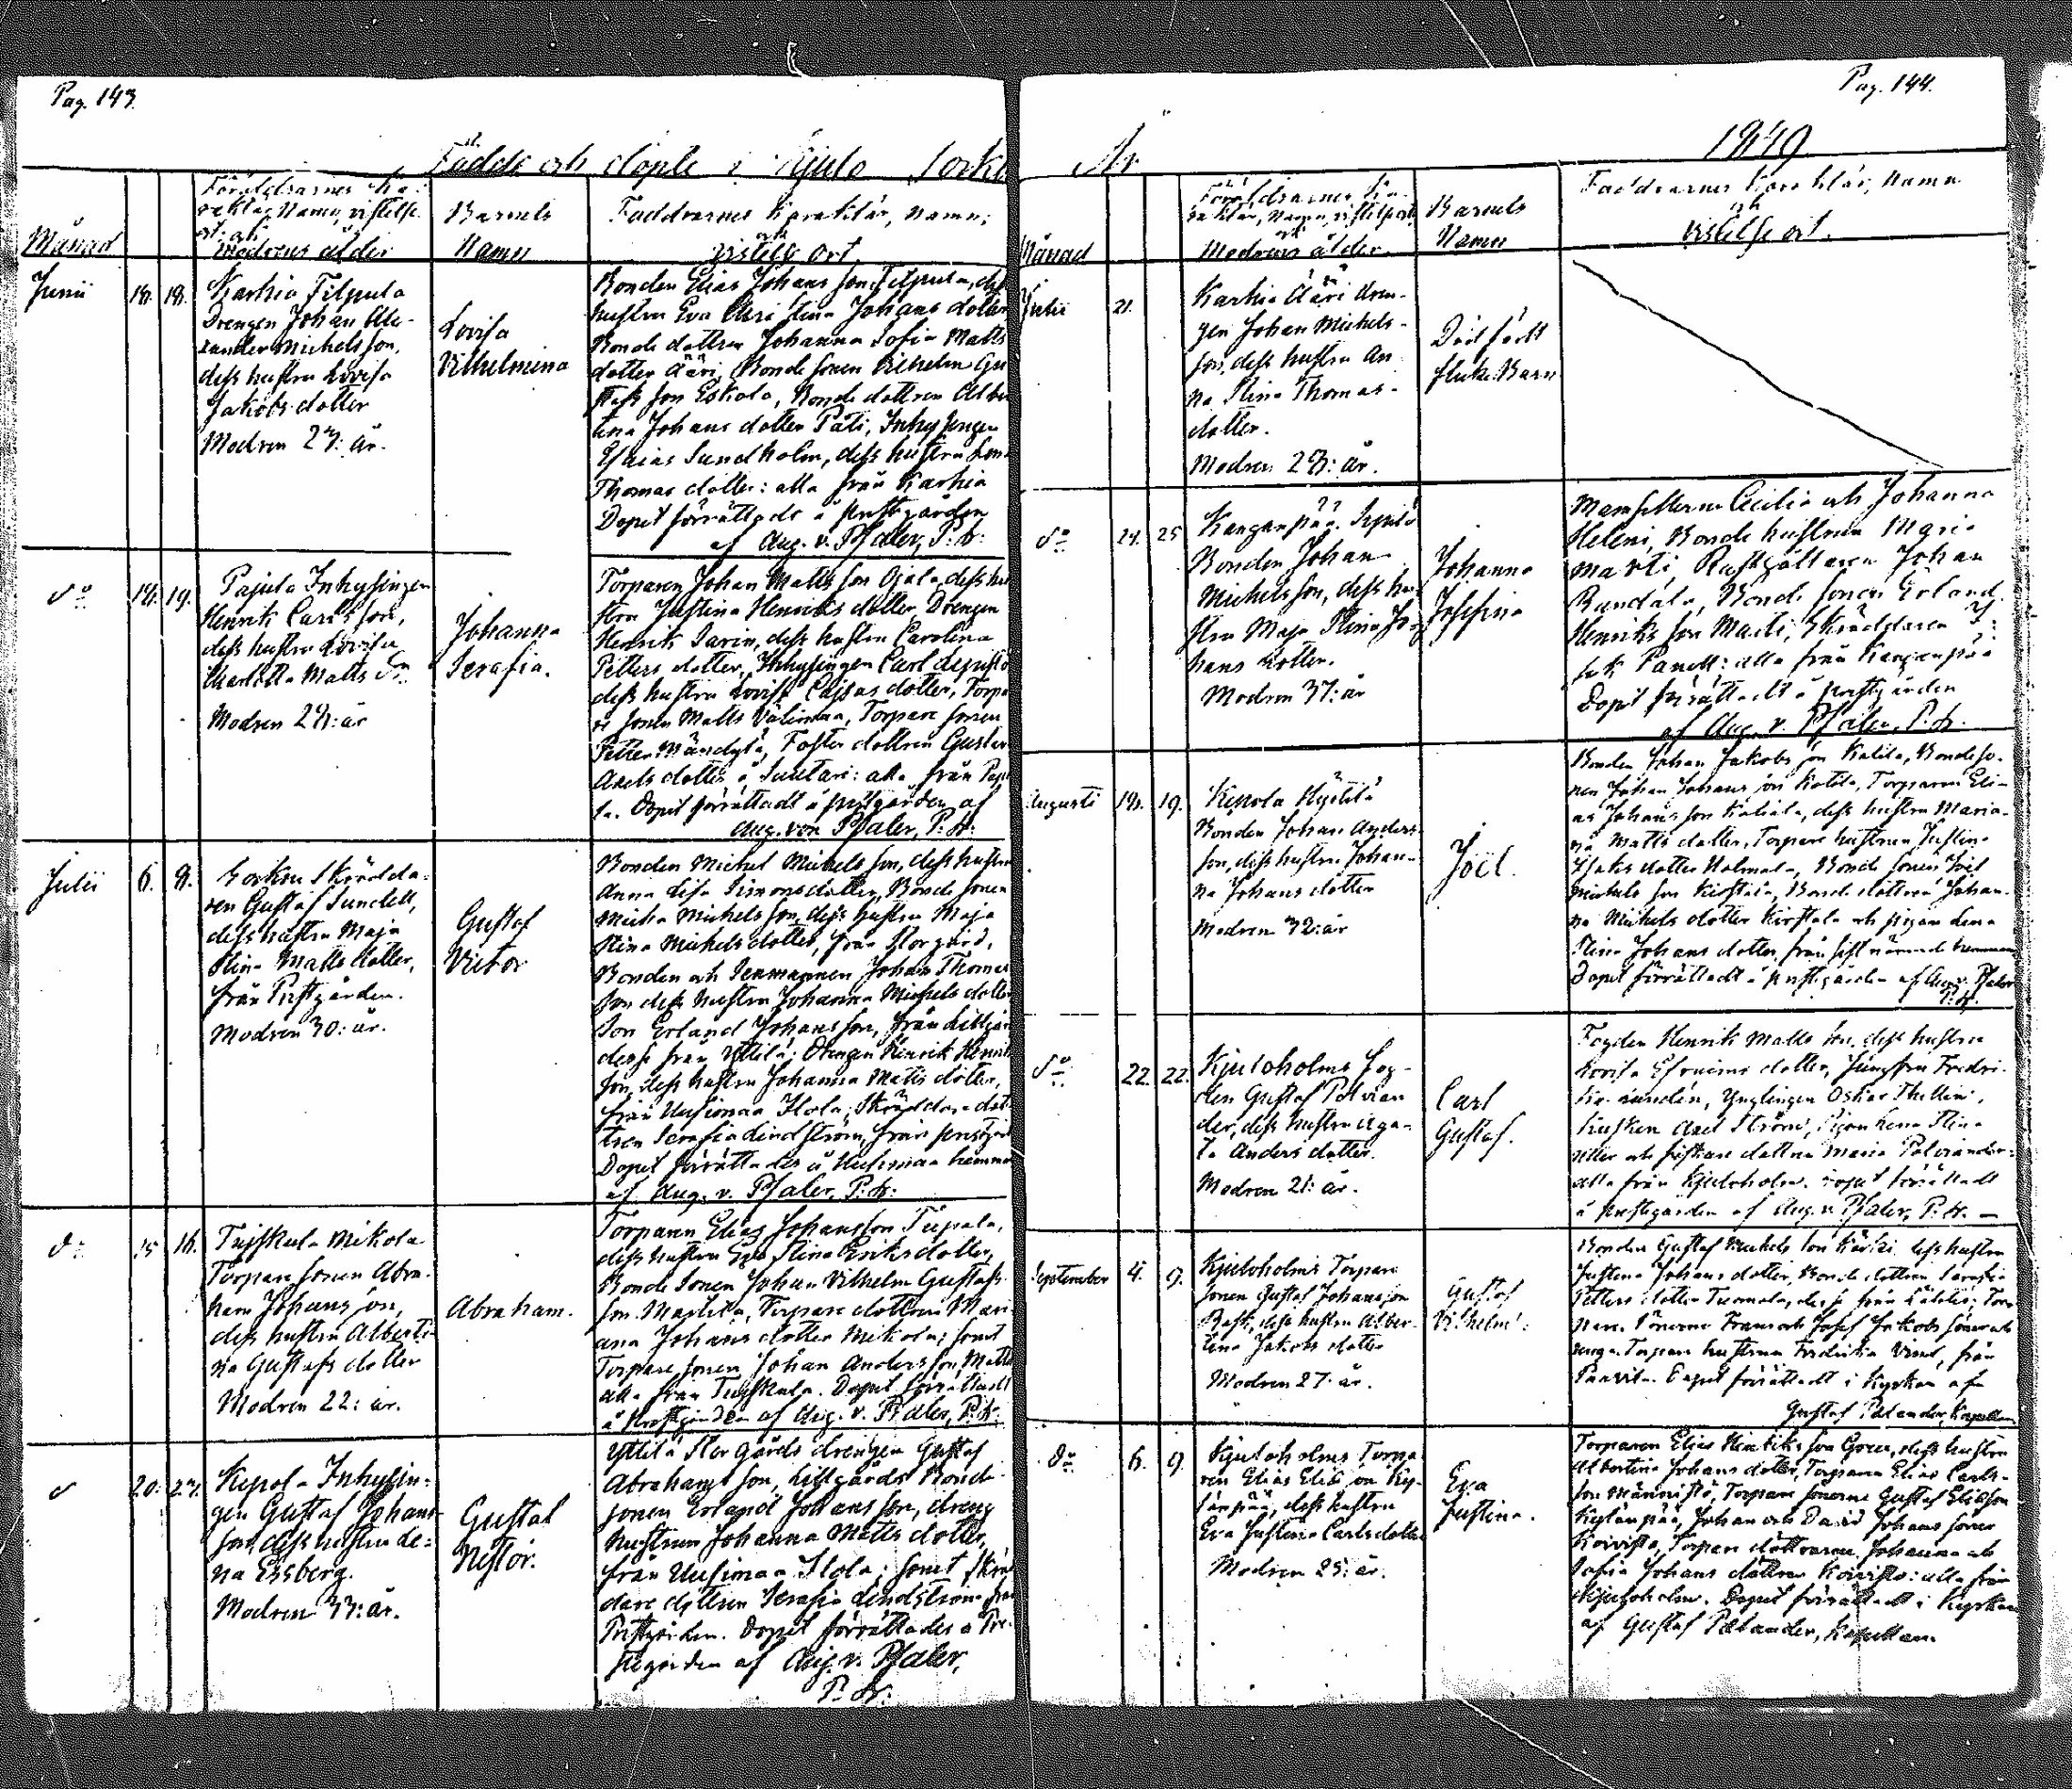 Pag. 143.
Födde och döpte i Kjulo Sock
Månad
Föräldrarnes Ka-
rakter, Namn, vistelse
ort och
Modrens ålder
Barnets
Namn
Faddrarnes Karaktär, namn,
och
vistelse ort.
Junii
18. 18.
Karhia Filpula
Drengen Johan Alex-
ander Michelsson,
dess hustru Lovisa
Jakobsdotter
Modren 27: år.
Lovisa
Vilhelmina
Bonden Elias Johans son Filpula, dess
hustru Eva Stina Johans dotter
Bonde dottren Johanna Sofia Matts
dotter Ääri, Bonde sonen Vilhelm Gu
stafs son Eskola, Bonde dottren Alber
tina Johans dotter Päti, Inhysingen
Esaias Sundholm, dess hustru
Thomas dotter: alla från Karhia
Dopet förrättade å prestgården
af Aug. v. Pfaler, P. A:
do
19.
Pajula Inhysingen
Henrik Carls son,
dess hustru Lovisa
Charlotta Matts dr
Modren 28: år
Johanna
Serafia.
Torparen Johan Matts son Ojala, dess hu
stru Justina Henriks dotter, Drengen
Henrik Sarin, dess hustru Carolina
Petters dotter, Inhysingen Carl
dess hustru Lovisa Cajsas dotter, Torpa
re sonen Matts Välimaa, Torpare sonen
Petter Mändylä, Foster dottren Gustava
Axels dotter å Suutari: alla från Paju
la. Dopet förrättadt å prestgården af
Aug. von Pfaler, P. A:
Julii
6. 8.
Skrädda-
ren Gustaf Sundell,
dess hustru Maja
Stina Matts dotter,
från Prestgården.
Modren 30: år.
Gustaf
Victor
Bonden Michel Michels son, dess hustru
Anna Lisa Simonsdotter, Bonde sonen
Michel Michels son, dess hustru Maja
Stina Michels dotter, från Storgård,
Bonden och Sexmannen Johan Thomas
son dess hustru Johanna Michels dotter
Son Erland Johansson, från Lillgård
desse från Yttilä; Drengen Henrik Henriks
son, dess hustru Johanna Matts dotter,
från Uusimaa Ilola, Skräddare dot-
tren Serafia Lindström, från prestgård
Dopet förrättades å Uusimaa hemman
af Aug. v. Pfaler, P. A:
do
15 16.
Tujskula Mikola
Torpare sonen Abra-
ham Johans son,
dess hustru Alberti-
na Gustafs dotter
Modren 22: år.
Abraham.
Torparen Elias Johansson Tiipala,
dess hustru Eva Stina Eriksdotter,
Bonde Sonen Johan Vilhelm Gustafs
son Torpare dottren Mari-
ana Johans dotter Mikola; samt
Torpare sonen Johan Anders son Matti
alla från Tujskula. Dopet förrättadt
å Prestgården af Aug. v. Pfaler, P. A.
d
20. 27.
Kepola Inhysin-
gen Gustaf Johans
son, dess hustru Le-
na Essberg.
Modren 33: år.
Gustaf
Nestor.
Yttilä Stor Gårds drengen Gustaf
Abrahams son, Lillgårds Bonde
sonen Erland Johans son, dreng
hustrun Johanna Matts dotter,
från Uusimaa Ilola; samt skräd
dare dottren Serafia Lindström från
Prestgården. Dopet förrättades å Pre-
stegården af Aug. v. Pfaler,
P. A:
Pag. 144.
År 1849
Månad
Föräldrarnes Ka-
raktär, Namn, vistelseort
och
Modrens ålder.
Barnets
Namn
Faddrarnes Karaktär, Namn
och
vistelse ort.
Julii
21.
Karhia Ääri dren-
gen Johan Michels-
son, dess hustru An-
na Stina Thomas-
dotter.
Modren 23: år.
Död födt
flicke Barn
do
24. 25
Kanganpää Seppilä
Bonden Johan
Michels son, dess hu-
stru Maja Stina Jo-
hans dotter.
Modren 37: år
Johanna
Josefina
Mamsellerne Cecilia och Johanna
Heleni, Bonde hustrun Maria
Marti, Rusthållaren Johan
Rundala, Bonde sonen Erland
Henriks son Marti, Skräddaren
Panell: alla från Kanganpää
Dopet förrättadt å prestgården
af Aug. v. Pfaler, P. A.
Augusti
18. 19.
Kepola Hystilä
Bonden Johan Anders
son, dess hustru Johan-
na Johans dotter
Modren 32: år
Joël.
Bonden Johan Jakobs son Katila, Bonde so-
nen Johan Johans son Katila, Torparen Eli-
as Johans son dess hustru Maria-
na Matts dotter, Torpare hustrun Justina
Isaks dotter Holmala, Bonde sonen Joel
Michels son Kirstula, Bonde dottren Johan-
na Michels dotter Kirstala och pigan Lena
Stina Johans dotter, från sist nämnde hemman
Dopet förrättadt å prestgården af Aug. v. Pfaler
P. A.
do
22. 22.
Kjuloholms Fog-
den Gustaf Polvian
der, dess hustru Aga-
ta Anders dotter.
Modren 21: år.
Carl
Gustaf.
Fogden Henrik Matts son, dess hustru
Lovisa Efraims dotter, Jungfru Fredri-
ka Sundén, Ynglingen Oskar Thellin,
Kusken Axel Ström, Pigan Lena Stina
och fiskare dottren Maria Polviander:
alla från Kjuloholm. Dopet förrättadt
å prestegården af Aug. v. Pfaler, P. A. —
September
4. 9.
Kjuloholms Torpare
sonen Gustaf Johansson
Rask, dess hustru Alber-
tina Jakobs dotter
Modren 27: år.
Gustaf
Vilhelm.
Bonden Gustaf Michels son dess hustru
Justina Johans dotter, Bonde dottren Serafia
Petters dotter Tuomola, desse från Tor-
pare sönerne Frans och Josef Jakobs söner och
Torpare hustrun Fredrika från
Dopet förrättadt i Kyrkan af
Gustaf Pælander, Kapellan
do
6. 9.
Kjuloholms Torpa
ren Elias Elis son Kej-
länpää, dess hustru
Eva Justina Carlsdotter
Modren 25: år.
Eva
Justina.
Torparen Elias Henriks son dess hustru
Albertina Johans dotter, Torparen Elias Carls-
son Männistö, Torpare sönerne Gustaf Eliasson
Kejlänpää, Johan och David Johans söner
Koivisto, Torpare döttrarne Johanna och
Sofia Johans döttrar Koivisto: alla från
Kjuloholm. Dopet förrättadt i Kyrkan
af Gustaf Pælander, Kapellan.